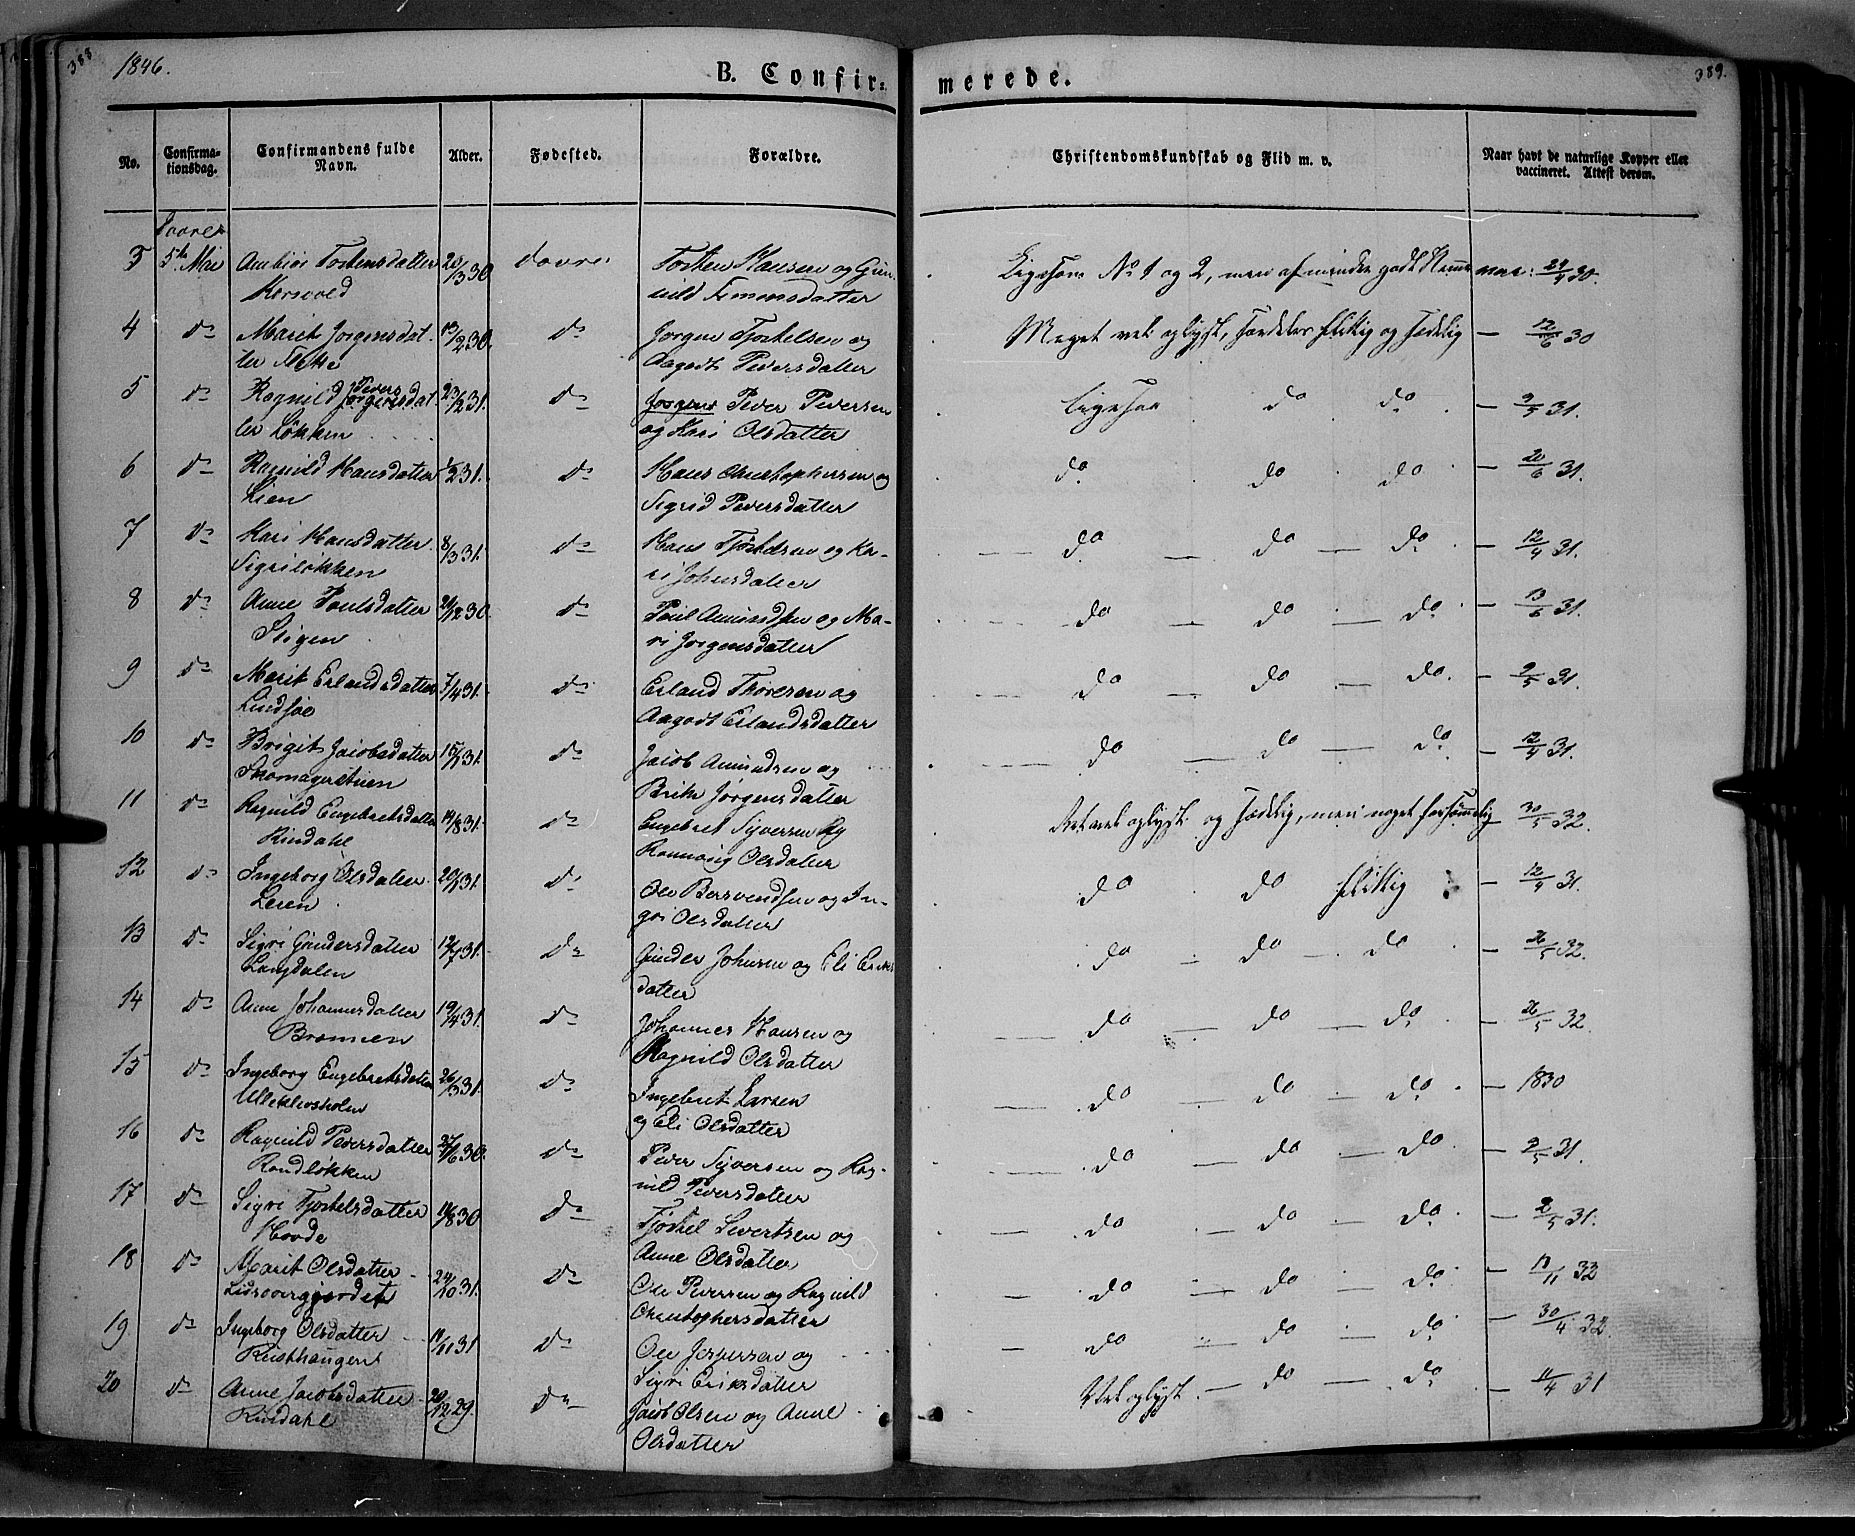 388
1846.
B. Confir=
merede.
389.
No.
Confirma-
tionsdag.
Confirmandens fulde
Navn.
Alder.
Fødested.
Forældre.
Christendomskundskab og Flid m. v.
Naar havt de naturlige Kopper eller
vaccineret. Attest derom.
3 5te Mai Anbiør Tostensdatter 20/3 30 Dovre Tosten Hansen og Gun- Ligesom No 1 og 2, men af mindre godt Nemme vacc: 24/4 30.
nild Simensdatter
4 do Marit Jørgensdat- 13/2 30. do Jørgen Tjostelsen og Meget vel oplyst, særdeles flittig og sædelig — 12/6 30
ter Aagodt Pedersdatter
5 do Ragnild Jørgensdat- Peders 23/2 31. do Jørgens Peder Pedersen Ligesaa do do — 9/5 31.
ter Løkken og Kari Olsdatter
6 do Ragnild Hansdatter 1/2 31. do Hans Christophersen og do do do — 20/6 31.
Lien Sigrid Pedersdatter
7 do Kari Hansdatter 8/3 31. do Hans Tjostelsen og Ka- do — do — do — 12/4 31.
Sigriløkken ri Johnsdatter
8 do Anne Poulsdatter 12 30. do Poul Amundsen og Ma- do — do — do — 13/6 31.
Stigen ri Jørgensdatter
9 do Marit Erlandsdatter 7/4 31. do Erland Thoresen og do — do — do. — 9/5 31.
Lindsøe Aagodt Erlandsdatter
10 do Brigit Jacobsdatter 31. do Jacob Amundsen og do — do — do — 12/4 31.
Skomagerstuen Brite Jørgensdatter
11 do Ragnild Engebretsdatter 14/8 31. do Engebret Syversen og Ret vel oplyst og sædelig, men noget forsømmelig 30/5 32.
Rindahl Rannoug Olsdatter
12 do Ingeborg Olsdatter 31. do Ole Bersvendsen og In- do do flittig — 12/4 31.
Leren gri Olsdatter
13 do Sigri Gundersdatter 31. do Gunder Johnsen og Eli Eriks do — do — do — 26/5 32.
Langdalen datter
14 do Anne Johannesdatter 19/4 31. do Johannes Hansen og do — do — do — 26/5 32.
Bromien Ragnild Olsdatter
15 do Ingeborg Engebretsdatter 26/3 31. do Ingebret Larsen do — do — do — 1830
Ulleklevsholm og Eli Olsdatter
16 do Ragnild Pedersdatter 27/6 30. do Peder Syversen og Rag- do — do — do — 9/5 31.
Randløkken nild Pedersdatter
17 do Sigri Tjostelsdatter 14/8 30 do Tjostel Sivertsen og do — do — do — 2/5 31.
Hovde Anne Olsdatter
18 do Marit Olsdatter 24/10 31. do Ole Pedersen og Ragnild do — do — do — 18/11 32
Christophersdatter
19 do Ingeborg Olsdatter 14/11 31 do Ole Jespersen og do — do — do — 30/4 32.
Rusthaugen Sigri Eriksdatter
20 do Anne Jacobsdatter 20/12 29. do Jacob Olsen og Anne Vel oplyst — do — do — 11/4 31
Rindahl Olsdatter